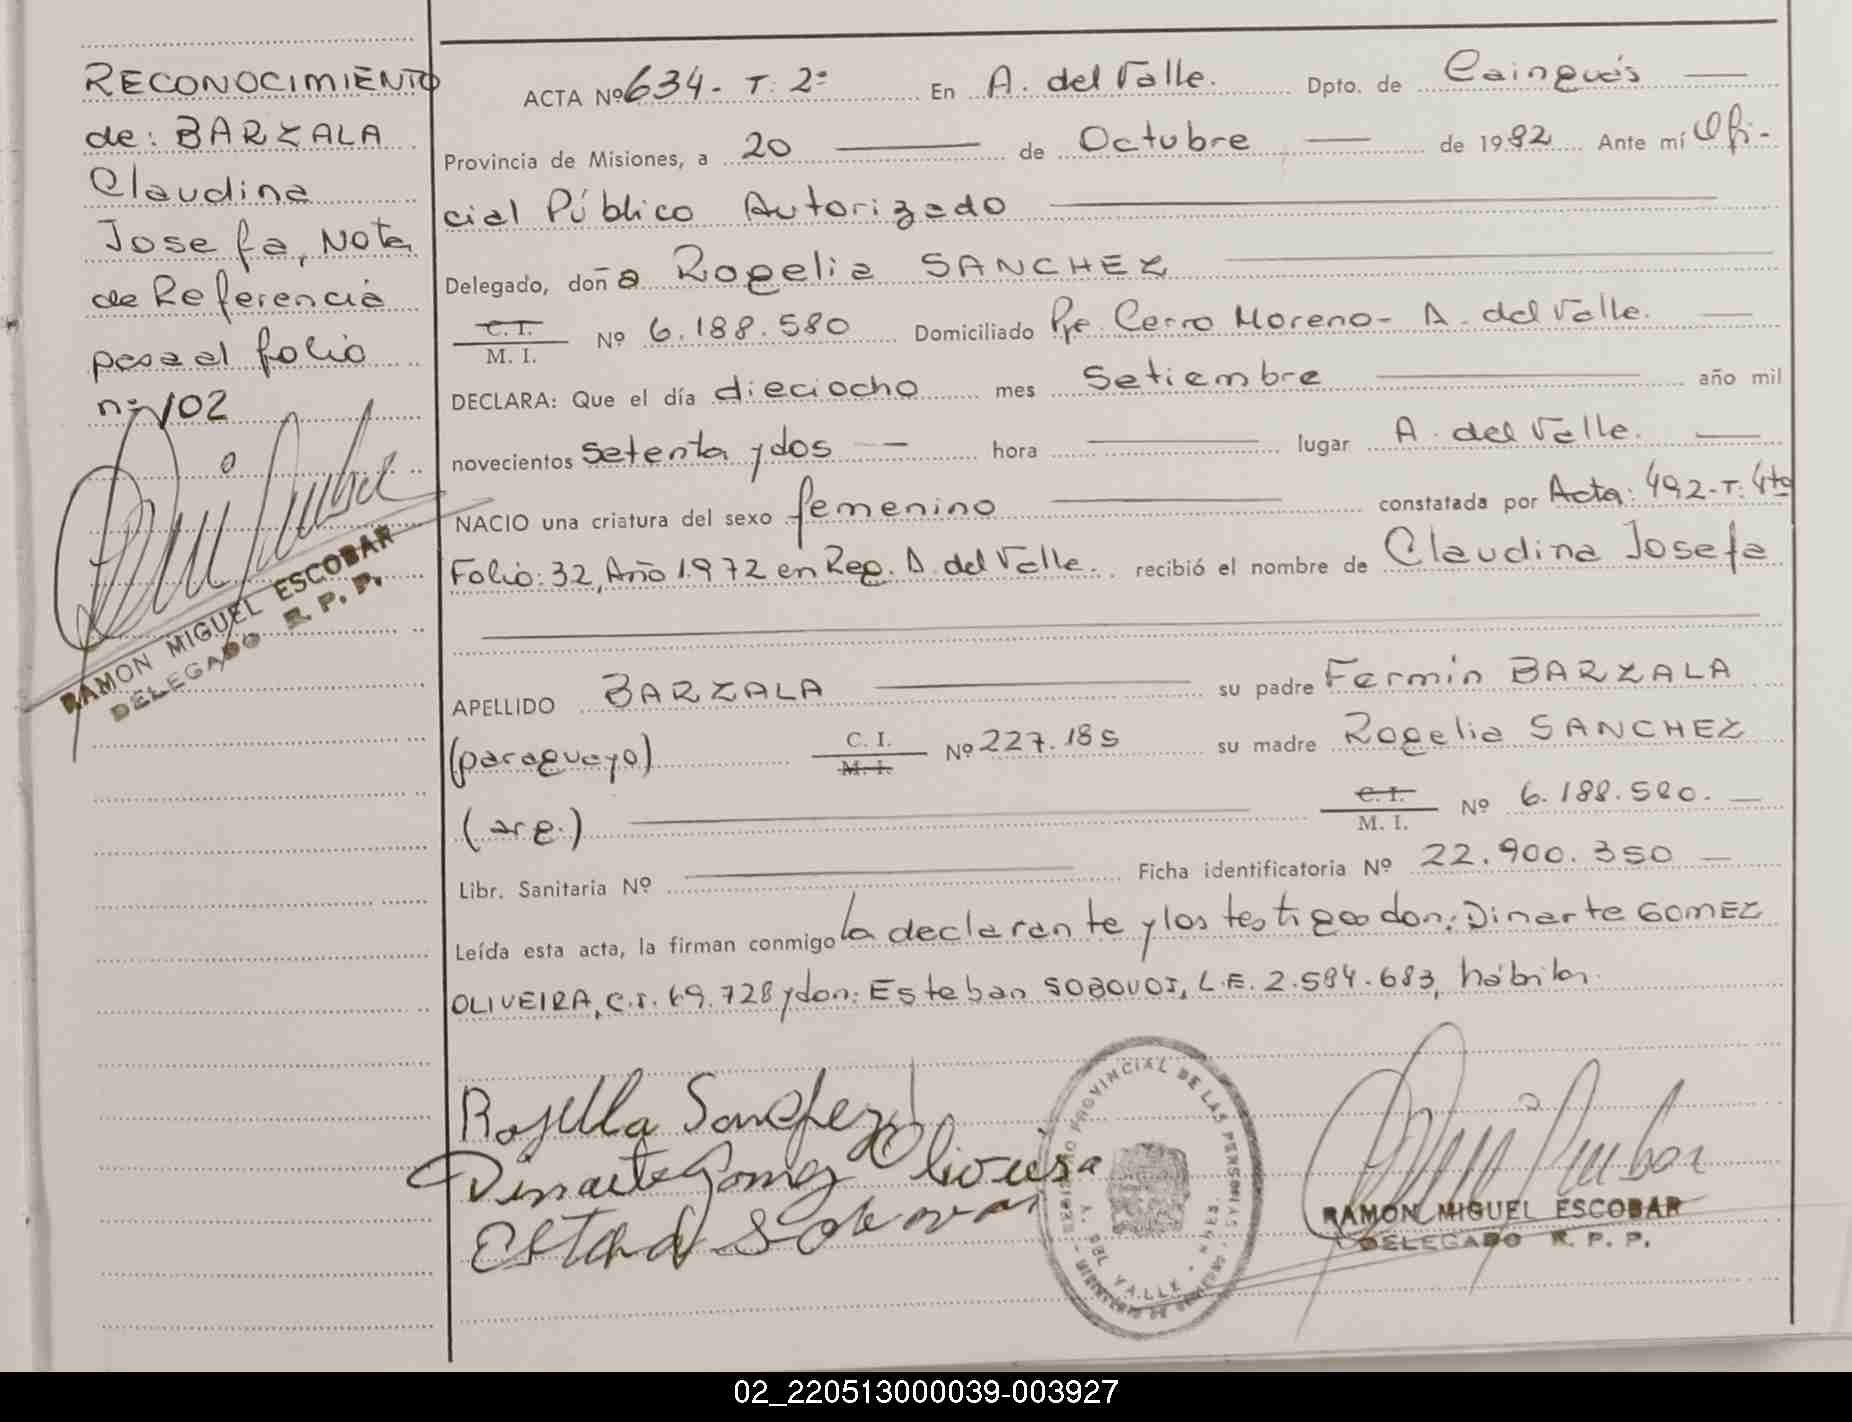 RECONOCIMIENTO
de: BARZALA
Claudina
Josefa, Nota
de Referencia
pasa al folio
nº 102
RAMON MIGUEL ESCOBAR
DELEGADO R. P. P.
ACTA Nº 634- T: 2º En A. del Valle. Dpto. de Cainguás
Provincia de Misiones, a 20 de Octubre de 1982 Ante mí Ofi-
cial Público Autorizado
Delegado, doña Rogelia SANCHEZ
C. I.
M. I. Nº 6.188.580 Domiciliado Pje. Cerro Moreno- A. del Valle.
DECLARA: Que el día dieciocho mes Setiembre año mil
novecientos setenta y dos hora lugar A. del Valle.
NACIO una criatura del sexo femenino constatada por Acta: 492-T: 4to
Folio: 32, Año 1.972 en Reg. A. del Valle. recibió el nombre de Claudina Josefa
APELLIDO BARZALA su padre Fermín BARZALA
(paraguayo) C. I.
M. I. Nº 227.185 su madre Rogelia SANCHEZ
(arg.) C. I.
M. I. Nº 6.188.580.
Libr. Sanitaria Nº Ficha identificatoria Nº 22.900.350
Leída esta acta, la firman conmigo la declarante y los testigos don: Dinarte GOMEZ
OLIVEIRA, C.I. 69.728 y don: Esteban SOBOVOI, L.E. 2.584.683, hábiles.
Rogelia Sanchez
Dinarte Gomez Oliveira
REGISTRO PROVINCIAL DE LAS PERSONAS
A. DEL VALLE - MNES.
RAMON MIGUEL ESCOBAR
DELEGADO R. P. P.
02_220513000039-003927